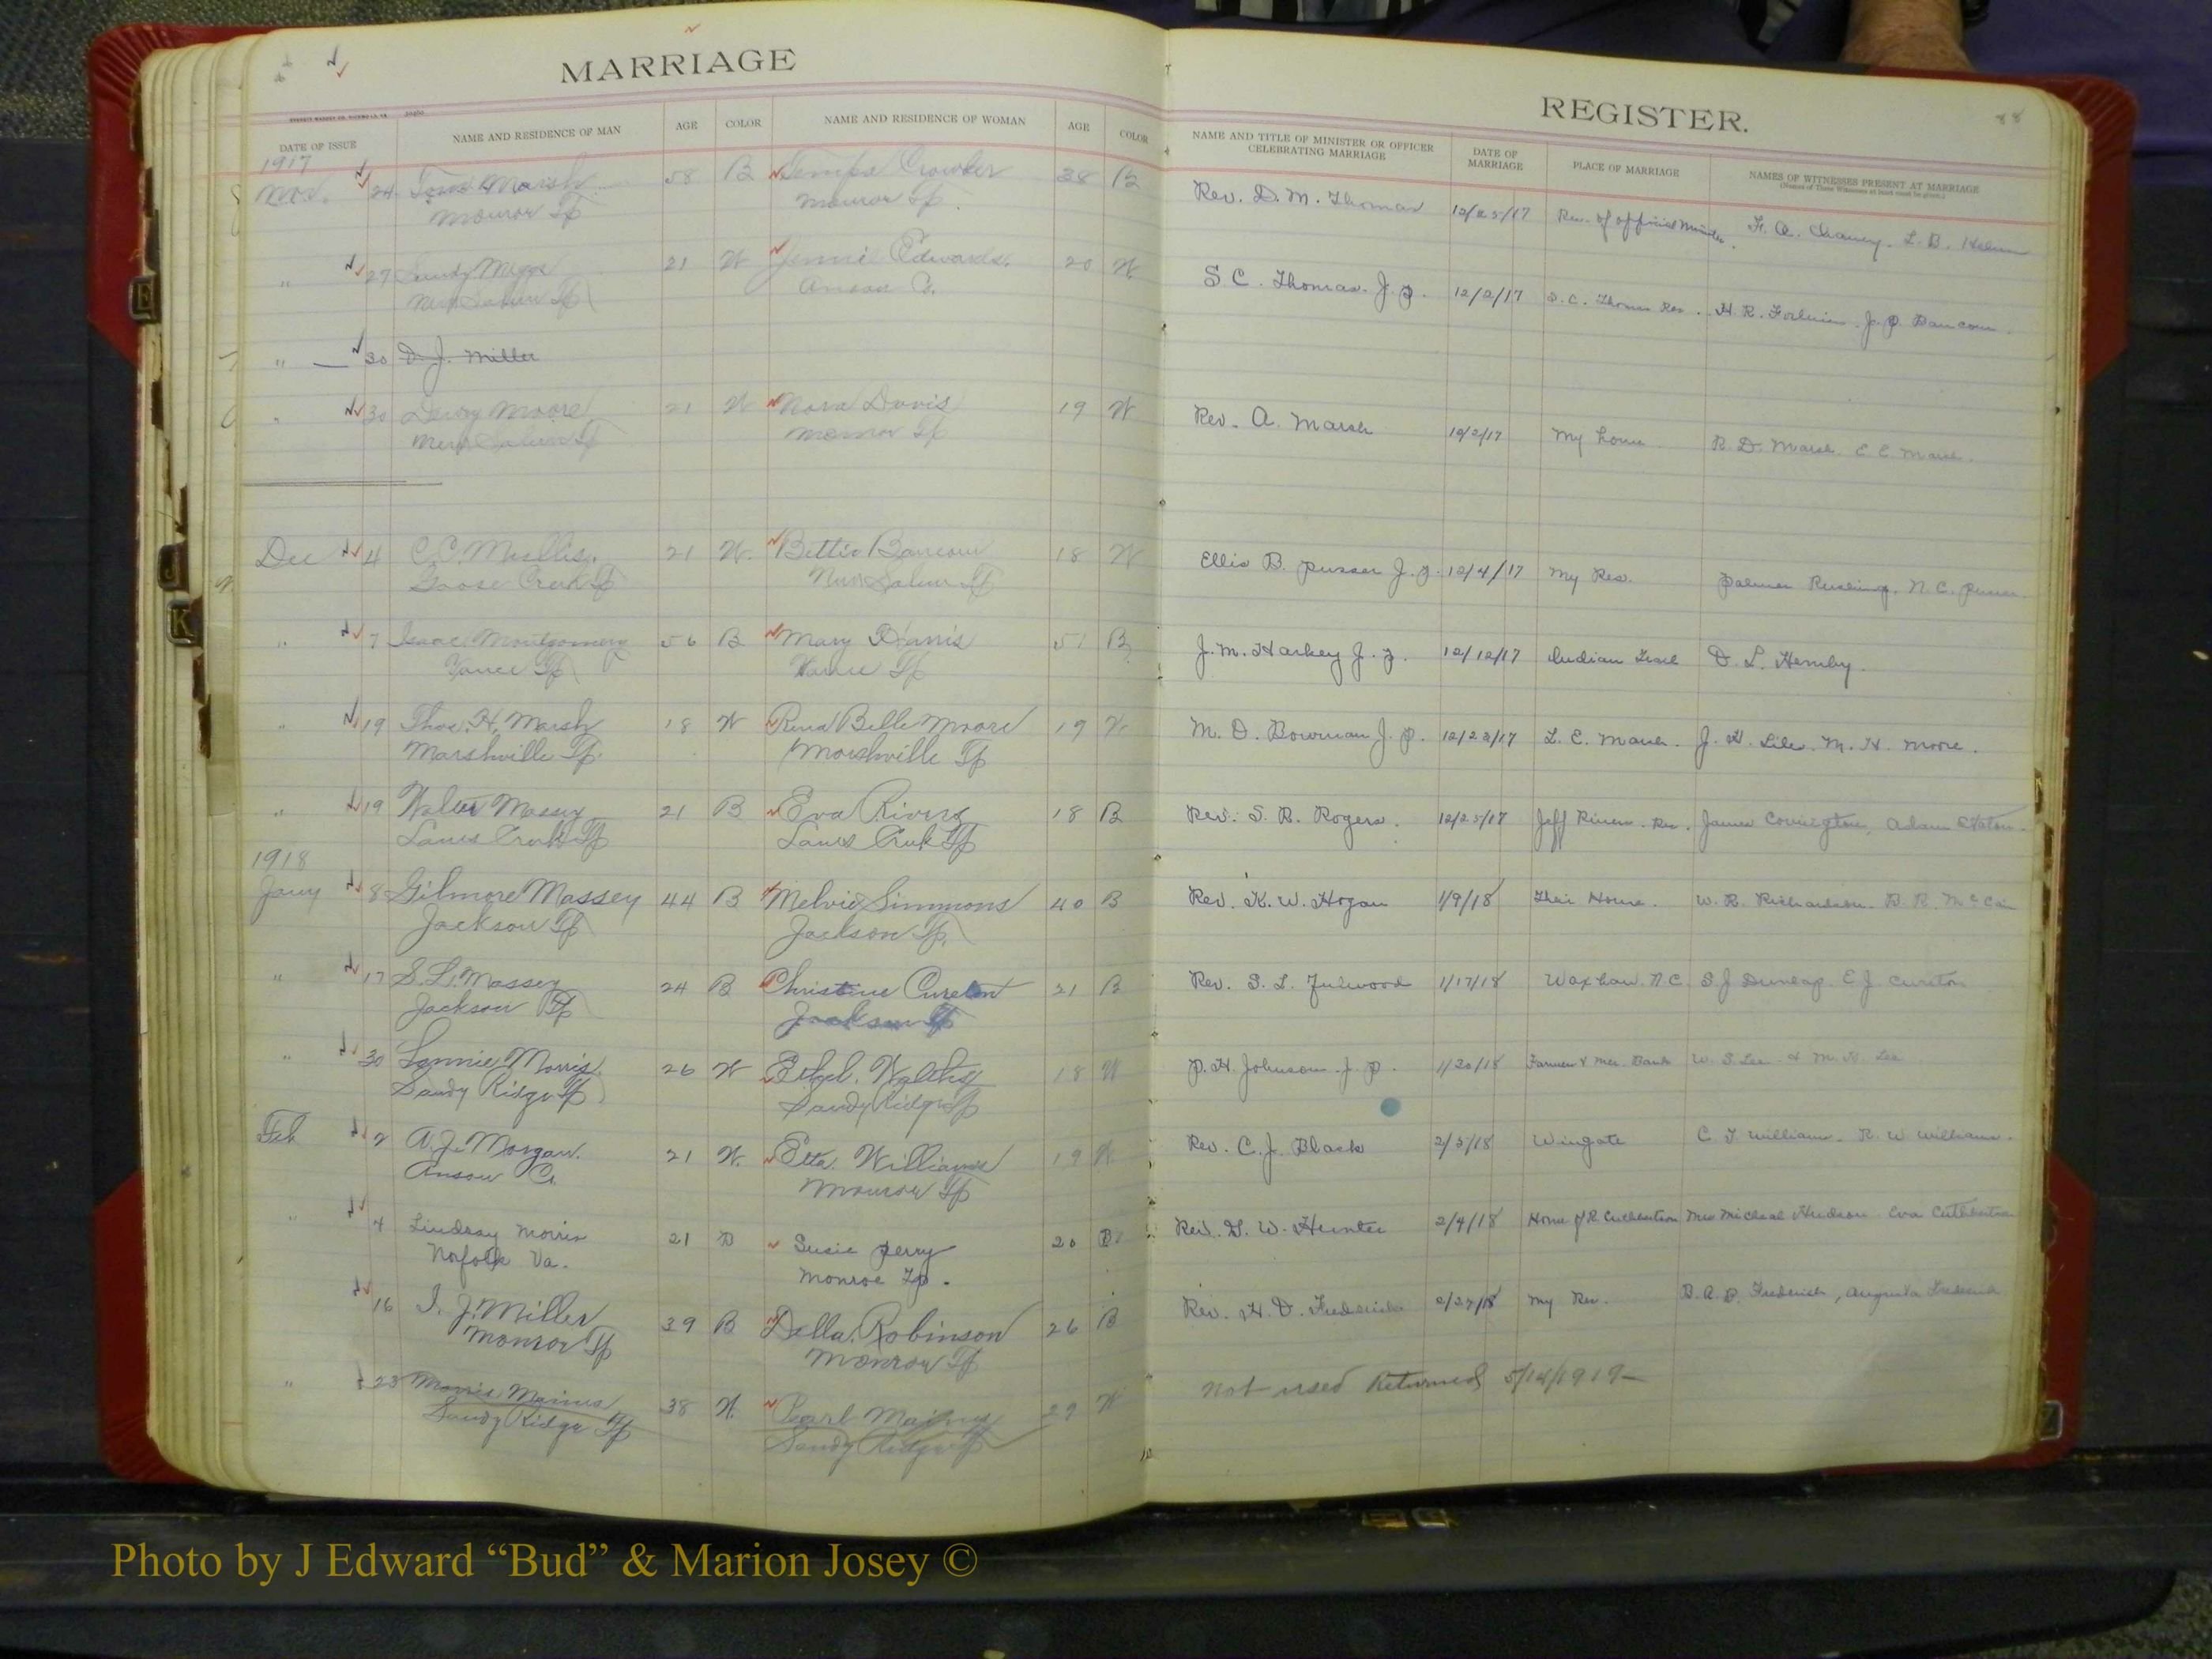 MARRIAGE
REGISTER.
88
DATE OF ISSUE
NAME AND RESIDENCE OF MAN
AGE
COLOR
NAME AND RESIDENCE OF WOMAN
AGE
COLOR
NAME AND TITLE OF MINISTER OR OFFICER
CELEBRATING MARRIAGE
DATE OF
MARRIAGE
PLACE OF MARRIAGE
NAMES OF WITNESSES PRESENT AT MARRIAGE
1917
Nov. 24 Marsh 58 B Crowder 38 B Rev. D. M. Thomas 12/25/17 Res. of officiating L. B. Helms
Monroe Tp Monroe Tp.
" 27 Sandy Meggs 21 W Jennie Edwards. 20 W S. C. Thomas. J. P. 12/2/17 S. C. Thomas Res. H. R. J. P. Baucom.
New Salem Tp Anson Co.
" 30 D. J. Miller
" 30 Moore 21 W Nora Davis 19 W Rev. A. Marsh 12/2/17 My home R. D. Marsh. E. E. Marsh.
New Salem Tp Monroe Tp
Dec 4 C. C. Mullis. 21 W. Bettie Baucom 18 W Ellis B. Pusser J. P. 12/4/17 My Res. Palmer N. C. Pusser
Goose Creek Tp New Salem Tp
" 7 Isaac Montgomery 56 B Mary Harris 51 B J. M. Harkey J. P. 12/12/17 Indian Trail D. L. Hemby.
Vance Tp Vance Tp
" 19 Thos. H. Marsh 18 W Rena Belle Moore 19 W M. D. Bowman J. P. 12/23/17 L. E. Marsh. M. H. Moore.
Marshville Tp. Marshville Tp
" 19 Walter Massey 21 B Eva Rivers 18 B Rev. S. R. Rogers. 12/25/17 Jeff Rivers. Res. James Covington, Adam Staton
Lanes Creek Tp Lanes Creek Tp
1918
Jany 8 Gilmore Massey 44 B Melvie Simmons 40 B Rev. K. W. Hogan 1/9/18 Their Home. W. R. Richardson. B. R. McCain
Jackson Tp Jackson Tp.
" 17 S. L. Massey 24 B Christine Cureton 21 B Rev. S. L. Fulwood 1/17/18 Waxhaw. N C. S J Dunlap. E J Cureton
Jackson Tp Jackson Tp
" 30 Lonnie Morris. 26 W Ethel. 18 W P. H. Johnson. J. P. 1/30/18 Farmer & Mer. Bank W. S. Lee &
Sandy Ridge Tp Sandy Ridge Tp
Feb 2 A. J. Morgan. 21 W. Etta. Williams 19 W Rev. C. J. Black 2/3/18 Wingate C. T. Williams. R. W. Williams.
Anson Co. Monroe Tp
" 4 Lindsay Morris 21 B Susie Perry 20 B Rev. G. W. Hunter 2/4/18 Home of R. Cuthbertson Mrs Michael Hudson. Eva Cuthbertson
Norfolk Va. Monroe Tp.
16 I. J. Miller 39 B Della. Robinson 26 B Rev. H. D. Frederick 2/27/18 My Res. Frederick, Augusta Frederick
Monroe Tp Monroe Tp
" 23 Morris 38 W. Pearl 29 W Not used Returned 5/14/1919-
Sandy Ridge Tp Sandy Ridge Tp
E
J
K
Photo by J Edward “Bud” & Marion Josey ©